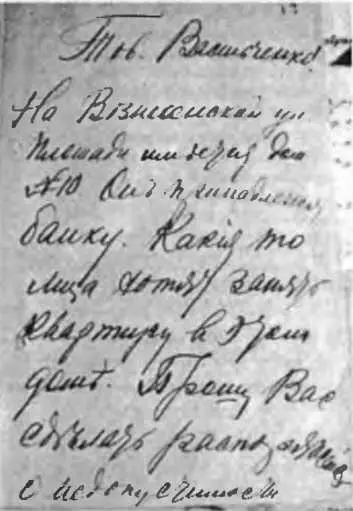 Тов. Василченко!
На Вознесенской ул
площади имеется дом
№10 Онъ принадлежит
банку. Какія то
лица хотят занять
квартиру в этом
домѣ. Прошу Вас
сдѣлать распоряженіе
о недопустимости